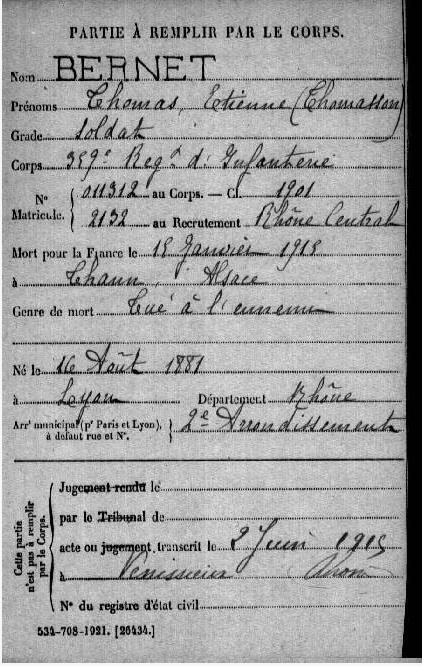 PARTIE À REMPLIR PAR LE CORPS.
Nom BERNET
Prénoms Thomas, Etienne (Thomasson)
Grade soldat
Corps 359e Regt d'Infanterie
No Matricule. { 011312 au Corps. — Cl. 1901
2132 au Recrutement Rhône Central
Mort pour la France le 15 Janvier 1915
à Thann, Alsace
Genre de mort Tué à l'ennemi
Né le 16 Août 1881
à Lyon Département Rhône
Arrt municipal (pr Paris et Lyon), à défaut rue et No. } 2e Arrondissement
Cette partie n'est pas à remplir par le Corps.
Jugement rendu le
par le Tribunal de
acte ou jugement transcrit le 2 Juin 1915
à Venissieux Rhône
No du registre d'état civil
534-708-1921. [26434.]